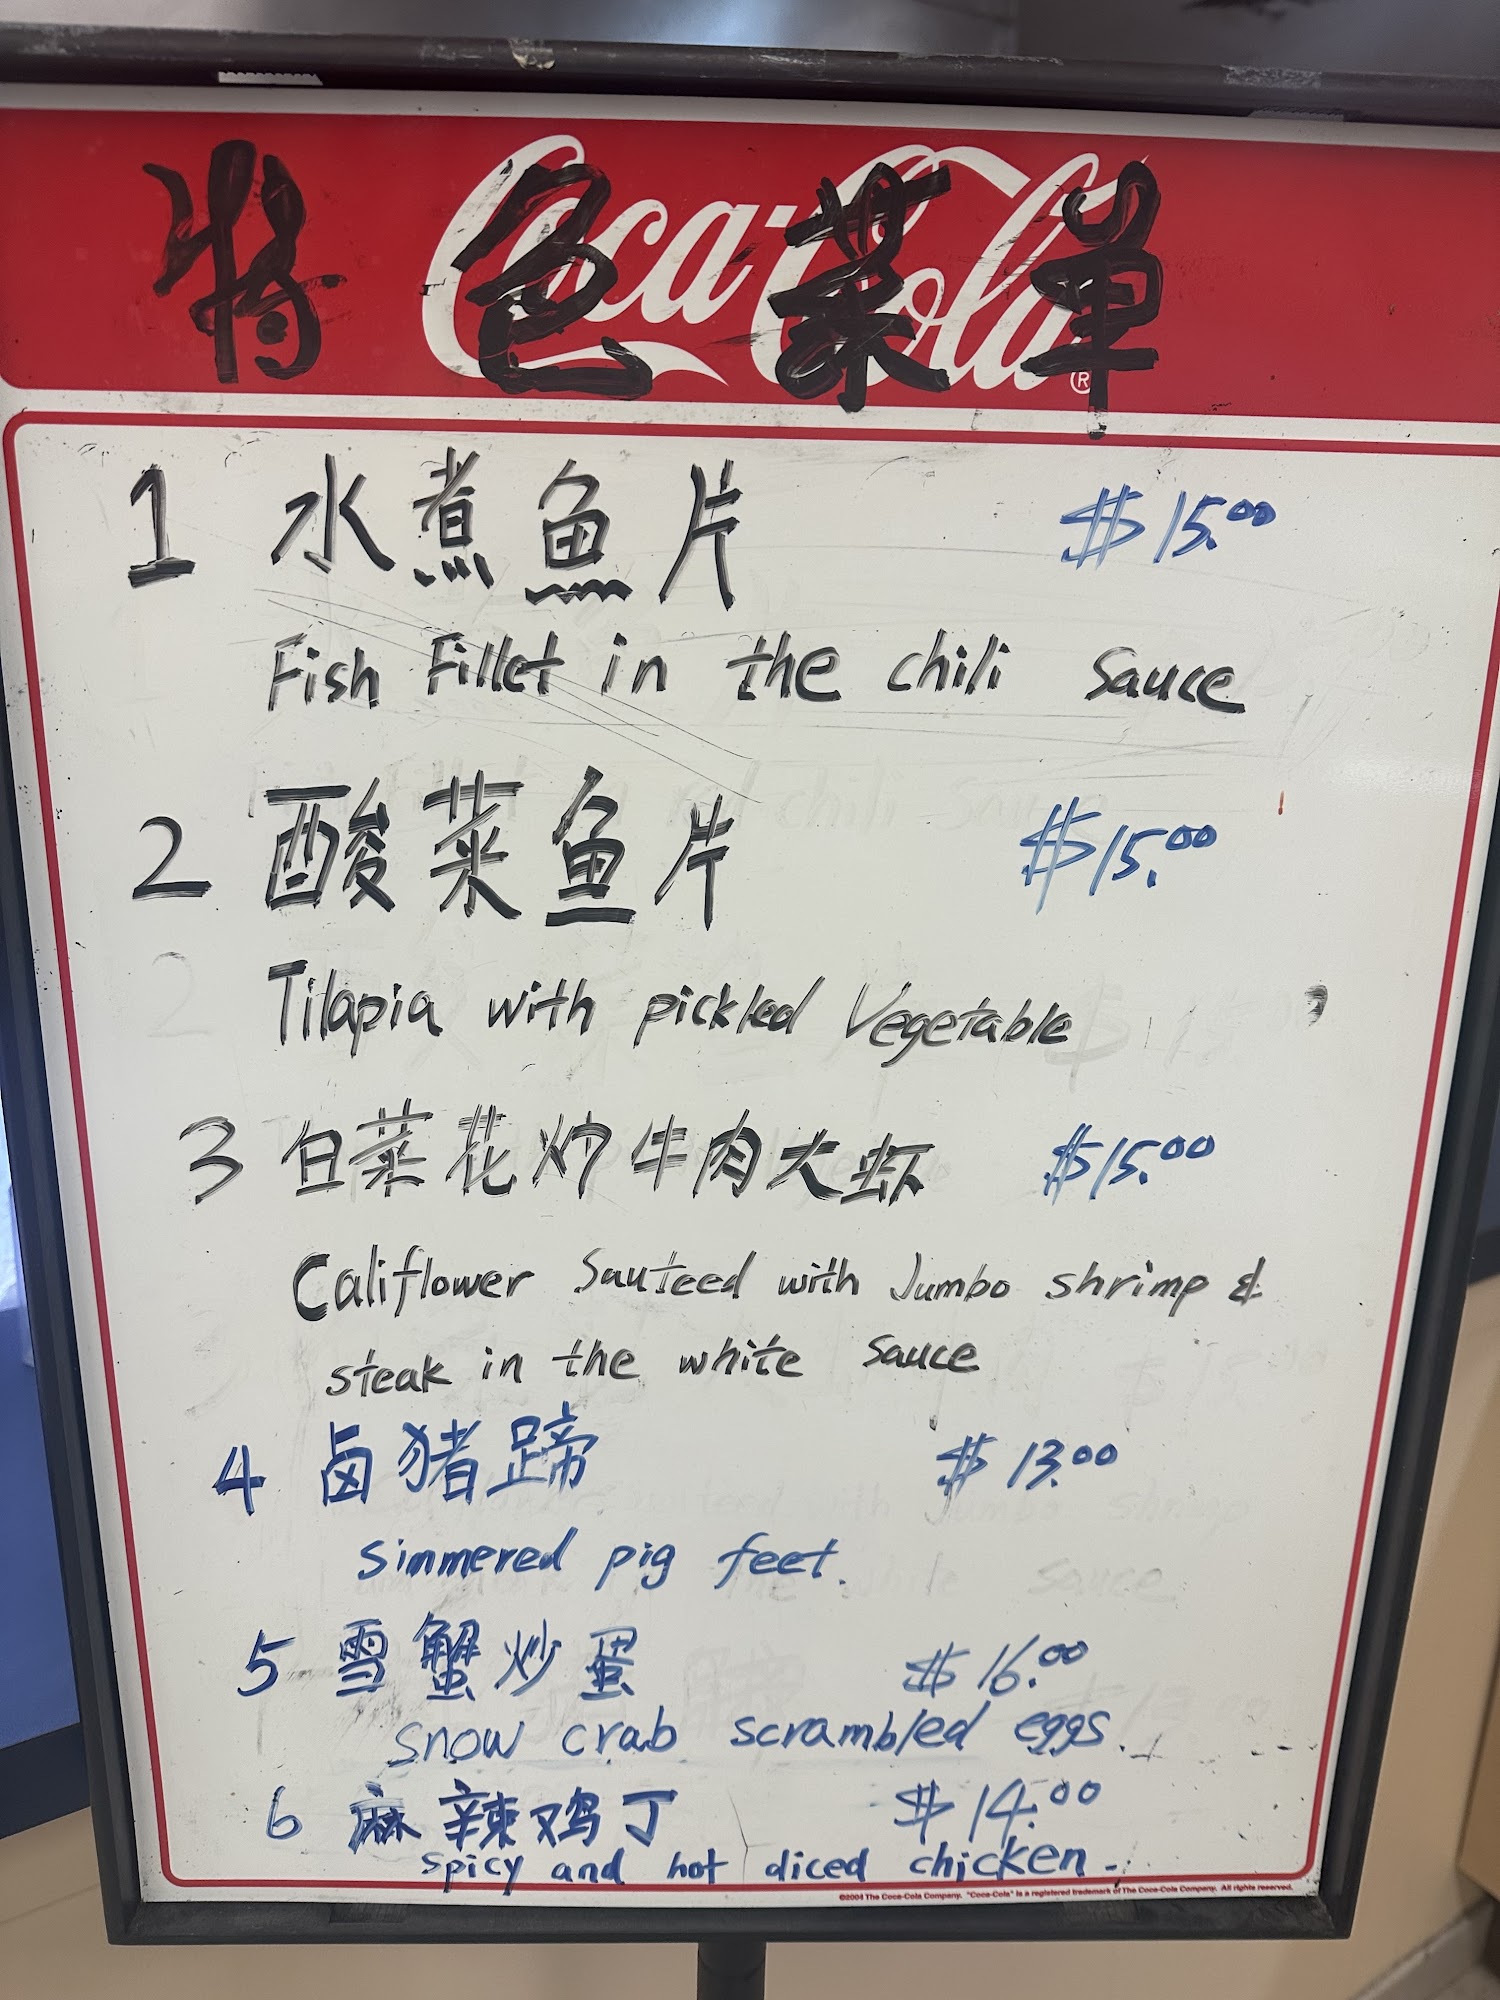 Coca-Cola®
特色菜单
1 水煮鱼片 $15.00
Fish Fillet in the chili Sauce
2 酸菜鱼片 $15.00
Tilapia with pickled Vegetable
3 白菜花炒牛肉大虾 $15.00
Califlower Sauteed with Jumbo shrimp &
steak in the white Sauce
4 卤猪蹄 $13.00
Simmered pig feet.
5 雪蟹炒蛋 $16.00
Snow crab scrambled eggs.
6 麻辣鸡丁 $14.00
Spicy and hot diced chicken.
©2004 The Coca-Cola Company. "Coca-Cola" is a registered trademark of The Coca-Cola Company. All rights reserved.